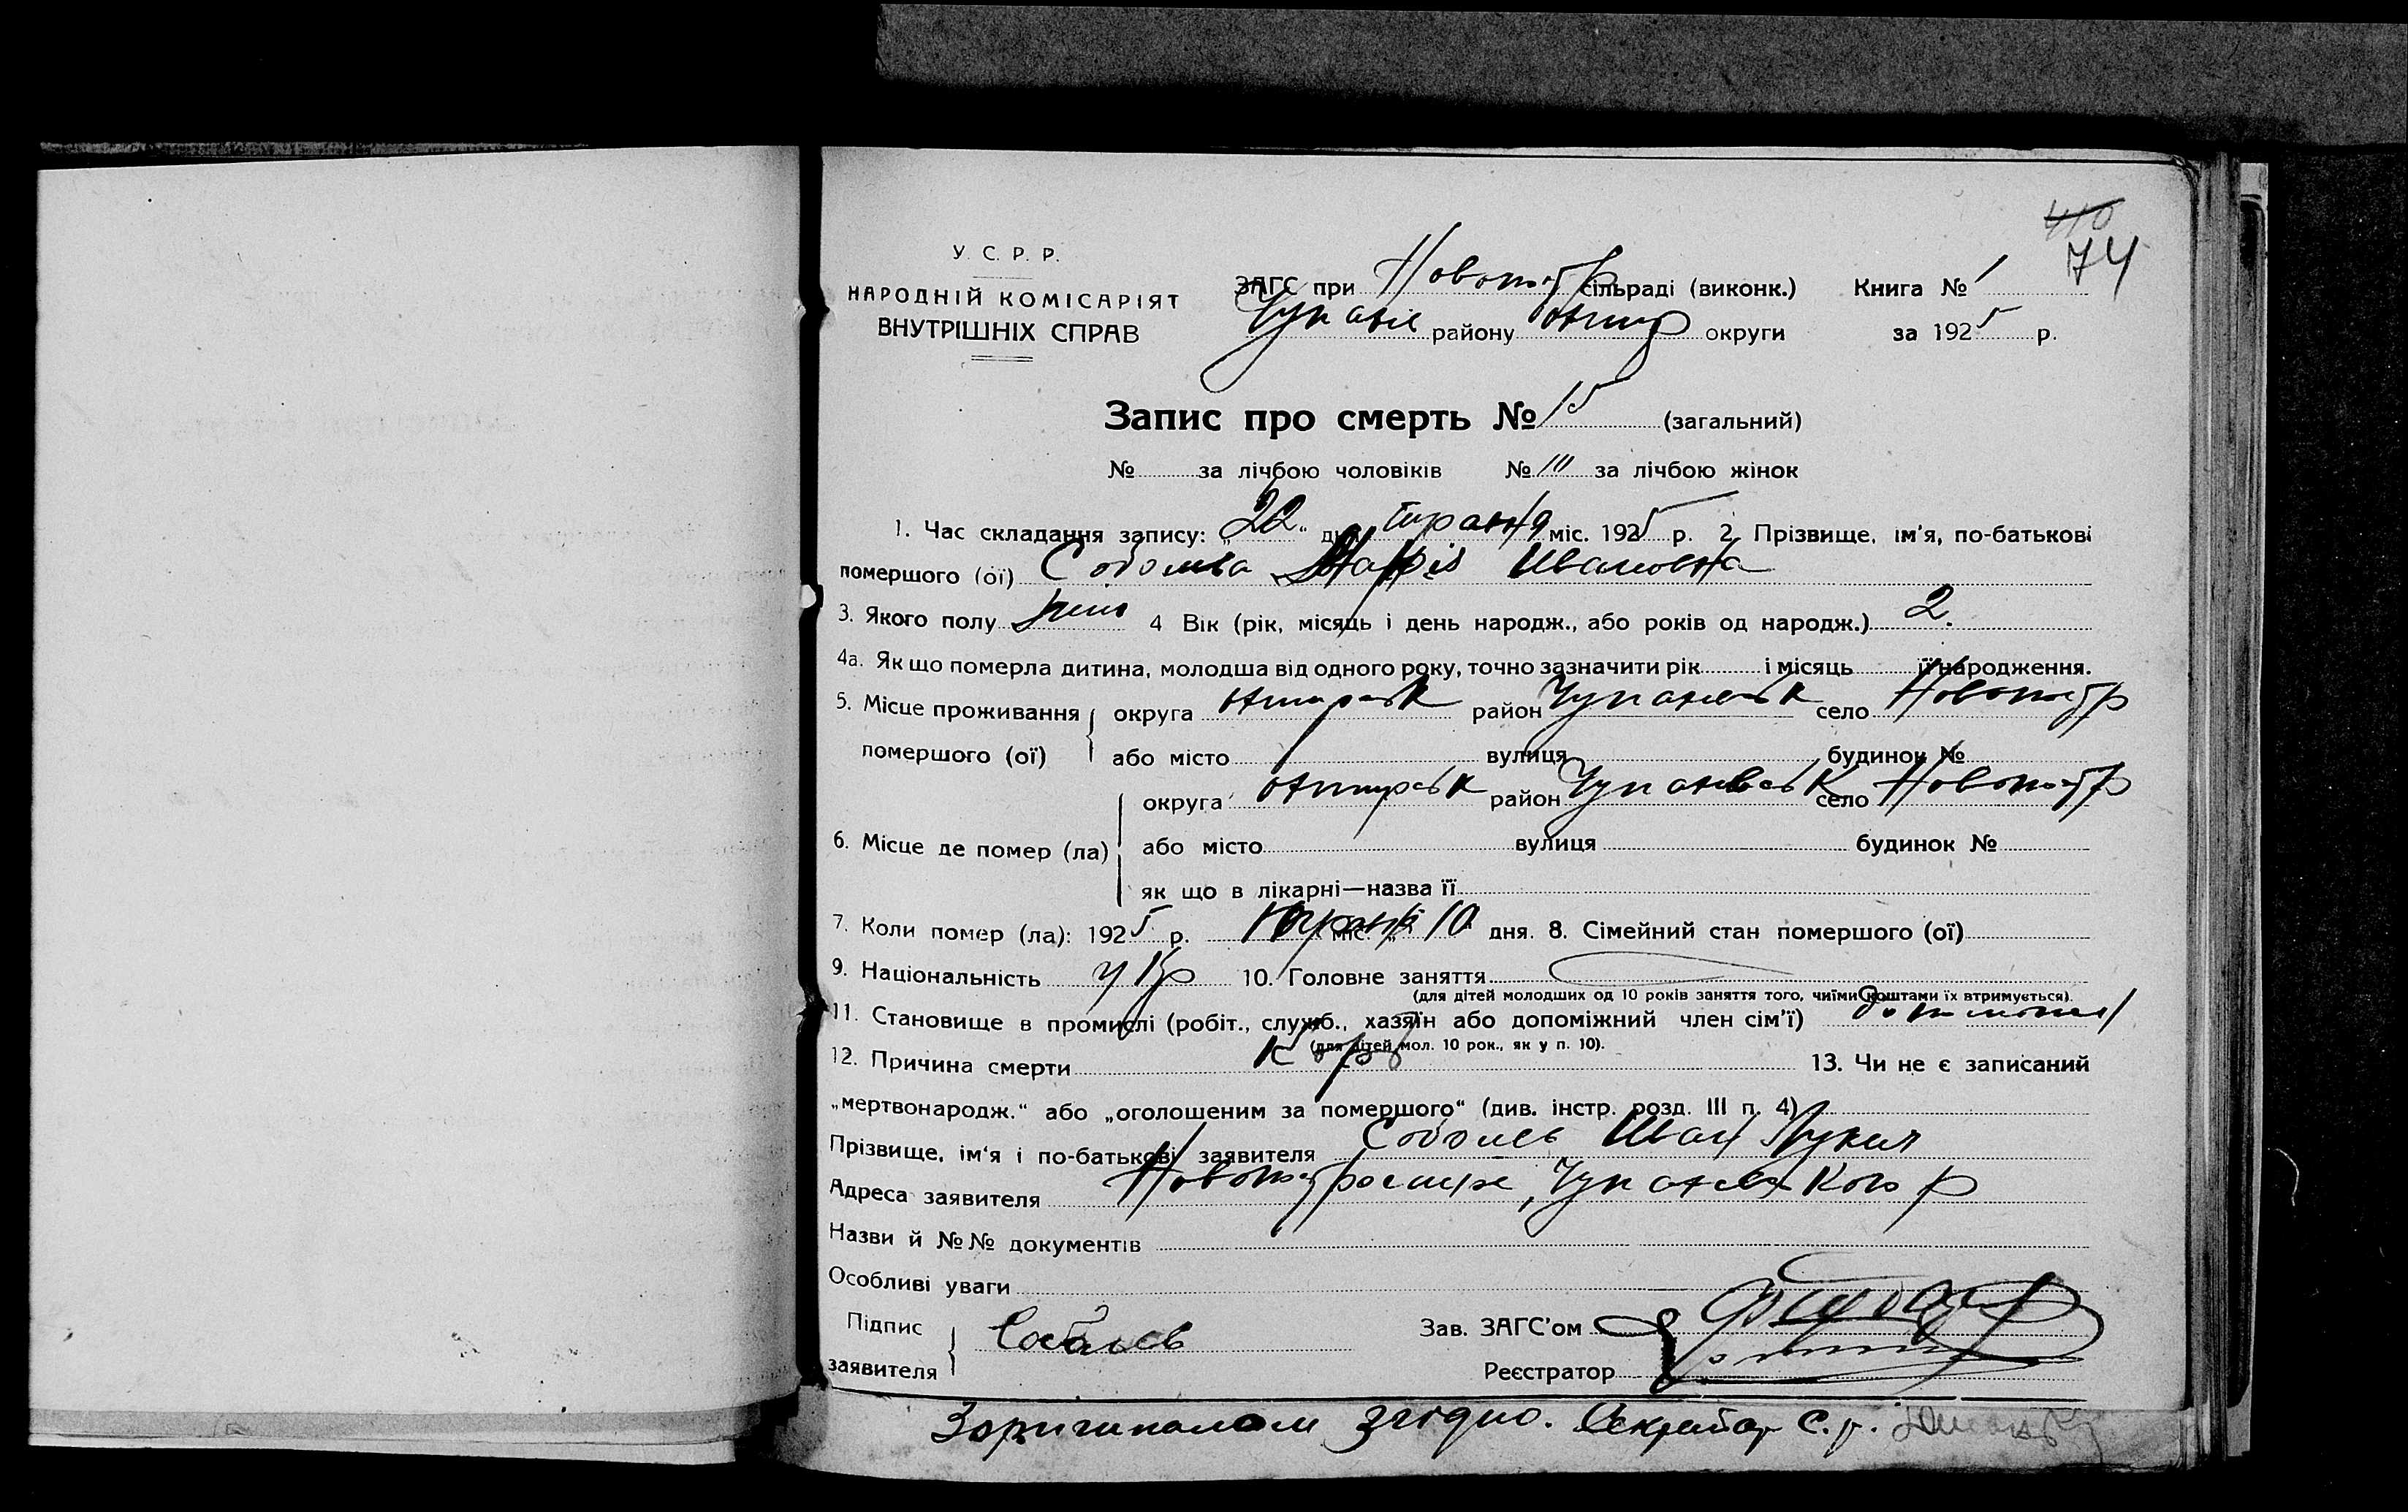 410
74
У. С. Р. Р.
НАРОДНІЙ КОМІСАРІЯТ
ВНУТРІШНІХ СПРАВ
ЗАГС при Новопетр сільраді (виконк.) Книга № 1
району округи за 1925 р.
Запис про смерть № 15 (загальний)
№ за лічбою чоловіків № III за лічбою жінок
1. Час складання запису: „22“ дня міс. 1925 р. 2. Прізвище, ім'я, по-батькові
помершого (ої) Марія Ивановна
3. Якого полу жін 4 Вік (рік, місяць і день народж., або років од народж.) 2.
4а. Як що померла дитина, молодша від одного року, точно зазначити рік і місяць її народження.
5. Місце проживання округа район село Новопетр
помершого (ої) або місто вулиця будинок №
округа район село Новопетр
6. Місце де помер (ла) або місто вулиця будинок №
як що в лікарні—назва її
7. Коли помер (ла): 1925 р. міс. „10“ дня. 8. Сімейний стан помершого (ої)
9. Національність укр 10. Головне заняття
(для дітей молодших од 10 років заняття того, чиїми коштами їх втримується).
11. Становище в промислі (робіт., служб., хазяїн або допоміжний член сім'ї)
(для дітей мол. 10 рок., як у п. 10).
12. Причина смерти Кір 13. Чи не є записаний
„мертвонародж.“ або „оголошеним за помершого“ (див. інстр. розд. III п. 4)
Прізвище, ім'я і по-батькові заявителя Соболев Иван
Адреса заявителя
Назви й №№ документів
Особливі уваги
Підпис
заявителя Соболев
Зав. ЗАГС'ом
Реєстратор
З оригиналом згідно. Секретар С.р.